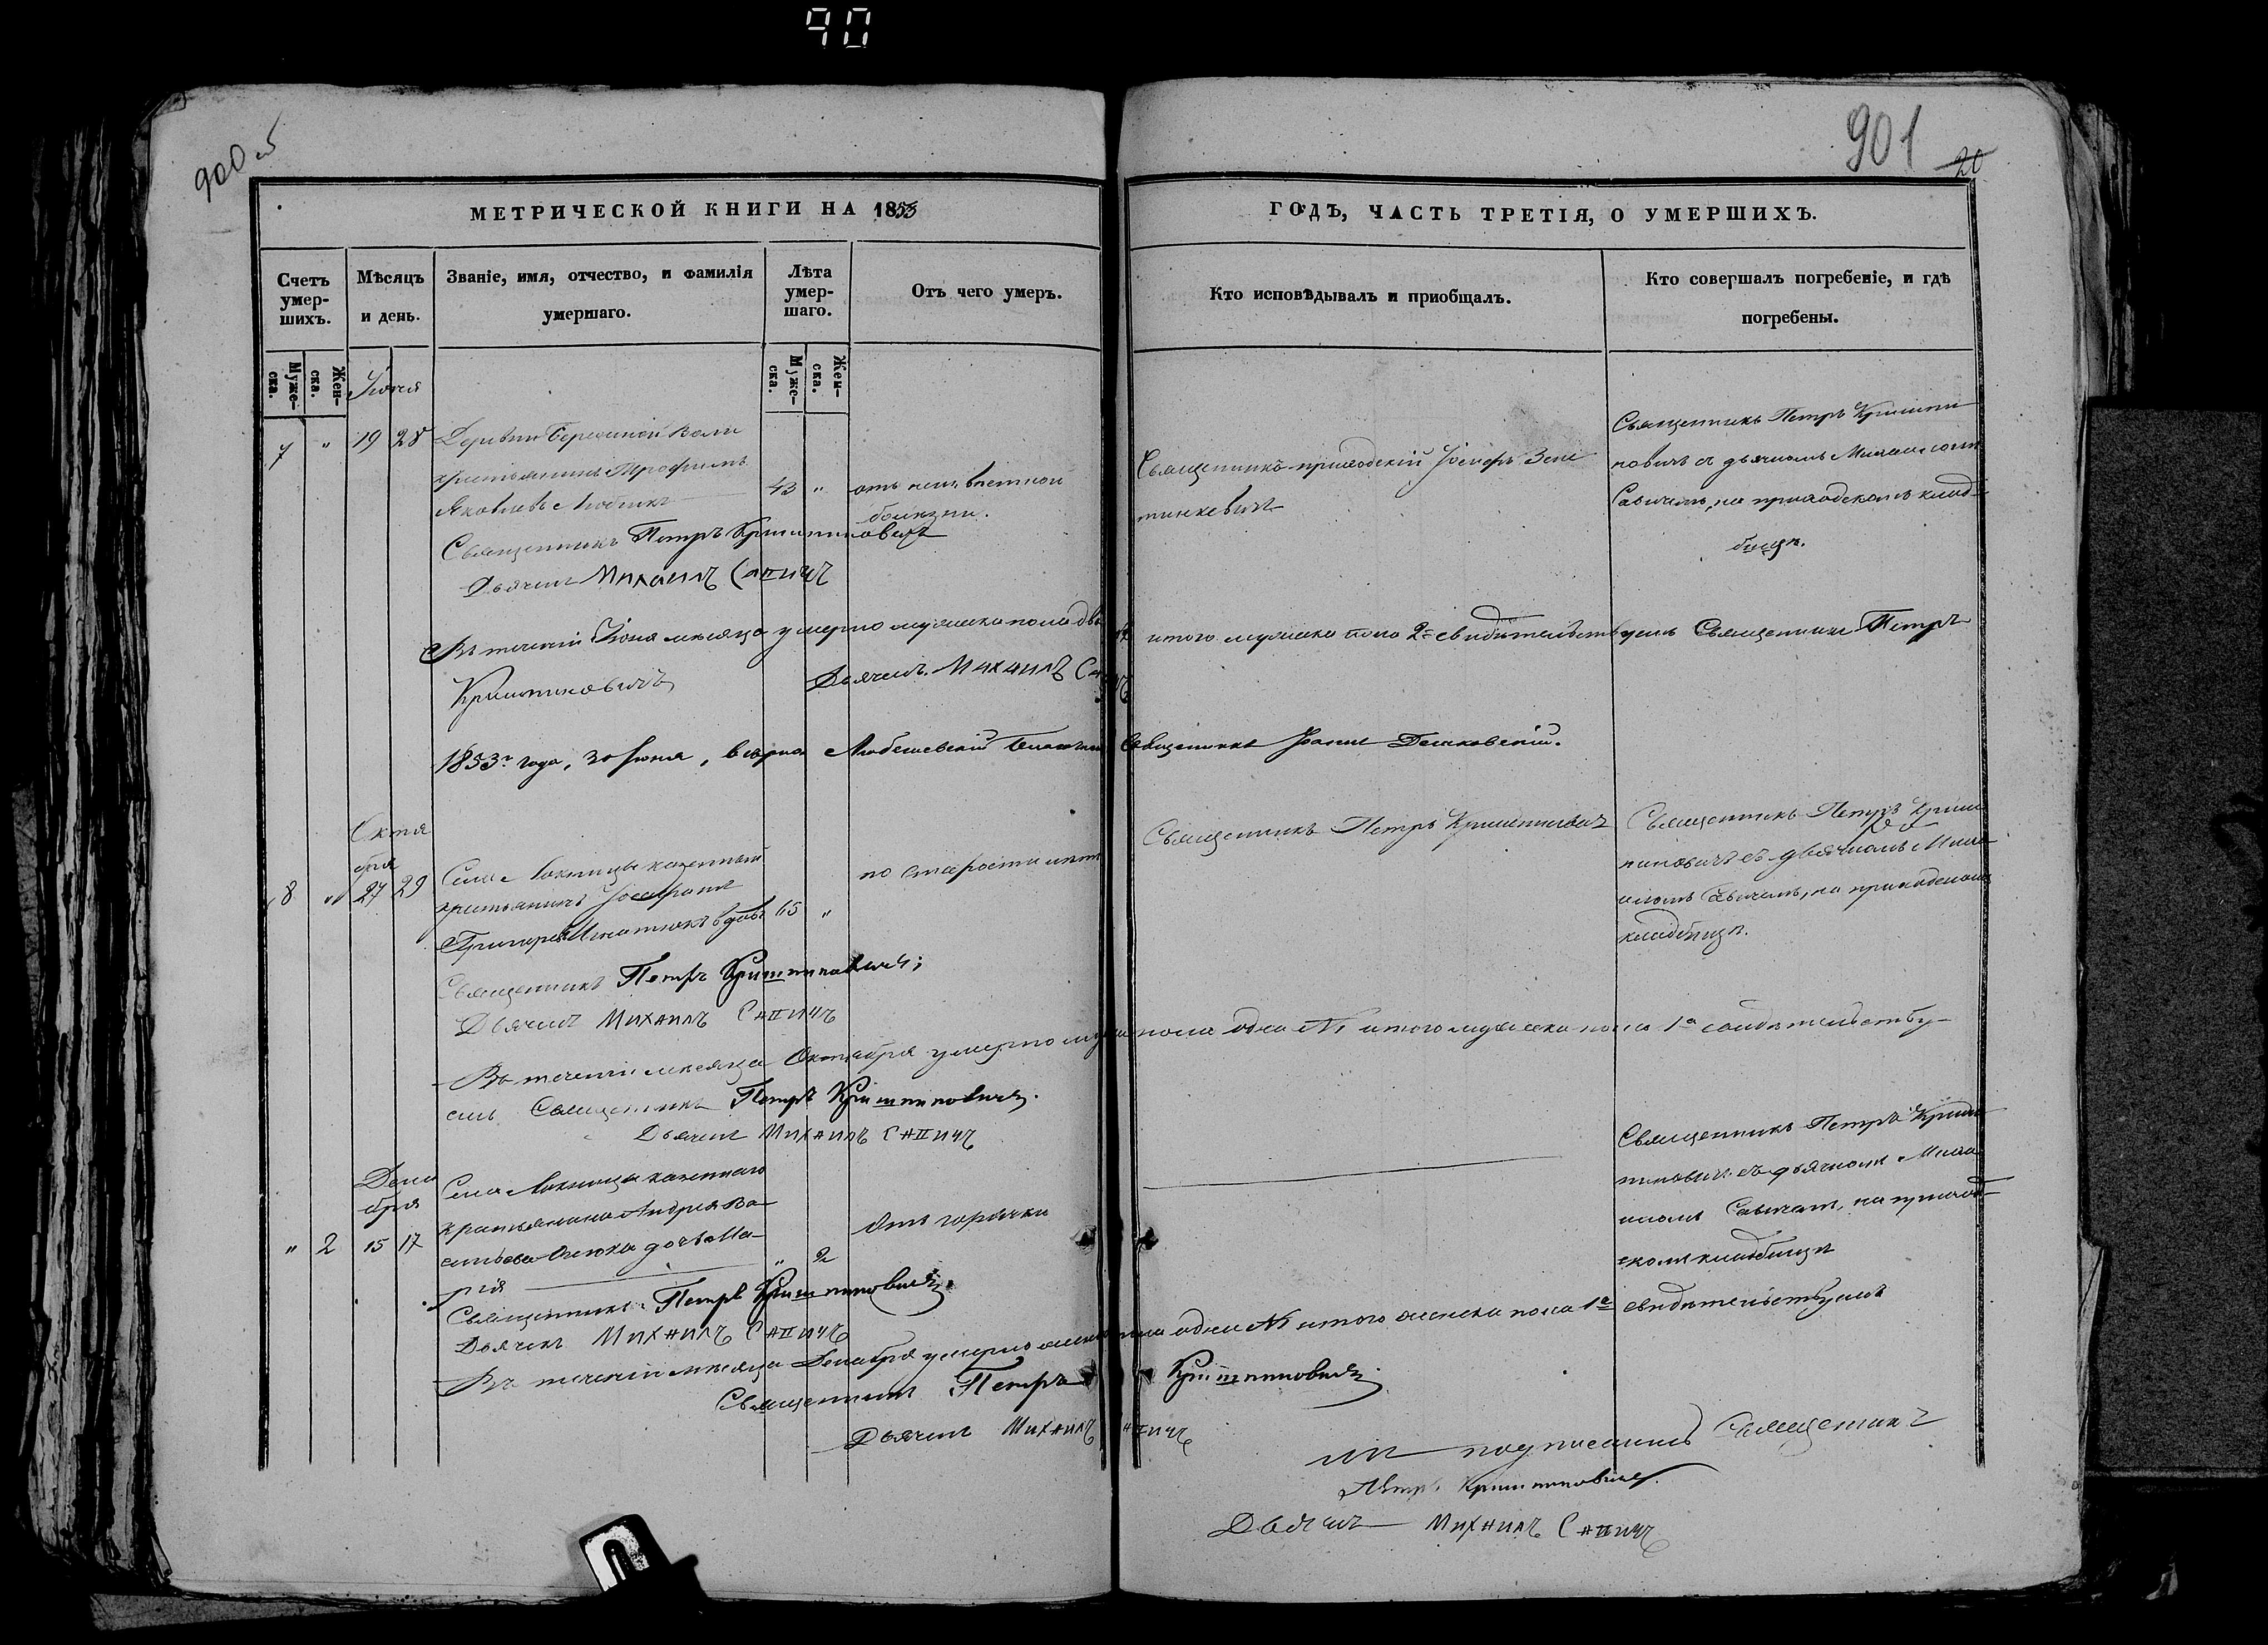 90
900 об
901
20
МЕТРИЧЕСКОЙ КНИГИ НА 1853
ГОДЪ, ЧАСТЬ ТРЕТІЯ, О УМЕРШИХЪ.
Счетъ умер-
шихъ.
Мѣсяцъ
и день.
Званіе, имя, отчество, и фамилія
умершаго.
Лѣта
умер-
шаго.
Отъ чего умеръ.
Кто исповѣдывалъ и приобщалъ.
Кто совершалъ погребеніе, и гдѣ
погребены.
Муже-
ска.
Жен-
ска.
Муже-
ска.
Жен-
ска.
Іюня
7 " 19 28 Деревни Березной Воли
крестьянинъ Трофимъ
Яковлевъ
43 "
отъ неизвѣстной
болезни.
Священникъ приходскій Іосифъ
Священникъ Петръ Кришти
новичъ съ дьячкомъ Михаиломъ
Сапичемъ, на приходскомъ клад-
бищѣ.
Священникъ Петръ Криштиновичъ
Дьячекъ Михаилъ Сапичъ
Въ теченіи Іюня мѣсяца умерло мужеска пола два итого мужеска пола 2= свидѣтельствуемъ Священникъ Петръ
Криштиновичъ
Дьячекъ Михаилъ Сапичъ
1853го года, 30 Іюня, Любешевскій Священникъ Іоаннъ
Октя
бря
8 " 27 29 Села Локницы казенный
крестьянинъ Іосафатъ
Григорьевъ Игнатюкъ вдовъ 65 "
по старости лѣтъ
Священникъ Петръ Криштиновичъ
Священникъ Петръ Кришти
пиновичъ съ дьячкомъ Миха
иломъ Сапичемъ, на приходскомъ
кладбищѣ.
Священникъ Петръ Криштиновичъ;
Дьячекъ Михаилъ Сапичъ
Въ теченіи мѣсяца Октября умерло мужеска пола одна №1 итого мужеска пола 1а свидѣтельству-
емъ Священникъ Петръ Криштиновичъ.
Дьячекъ Михаилъ Сапичъ
Дека
бря
" 2 15 17 Села Локницы казеннаго
крестьянина Андрея Ва-
сильева дочь Ма-
рія
" 2
Отъ горячки
Священникъ Петръ Кришти
пиновичъ съ дьячкомъ Миха
иломъ Сапичемъ, на приход-
скомъ кладбищѣ
Священникъ Петръ Криштиновичъ.
Дьячекъ Михаилъ Сапичъ
Въ теченіи мѣсяца Декабря умерло женска пола одна №1 итого женска пола 1а свидѣтельствуемъ
Священникъ Петръ Криштиновичъ
Дьячекъ Михаилъ Сапичъ
подписаль Священникъ
Петръ Криштиновичъ.
Дьячекъ Михаилъ Сапичъ